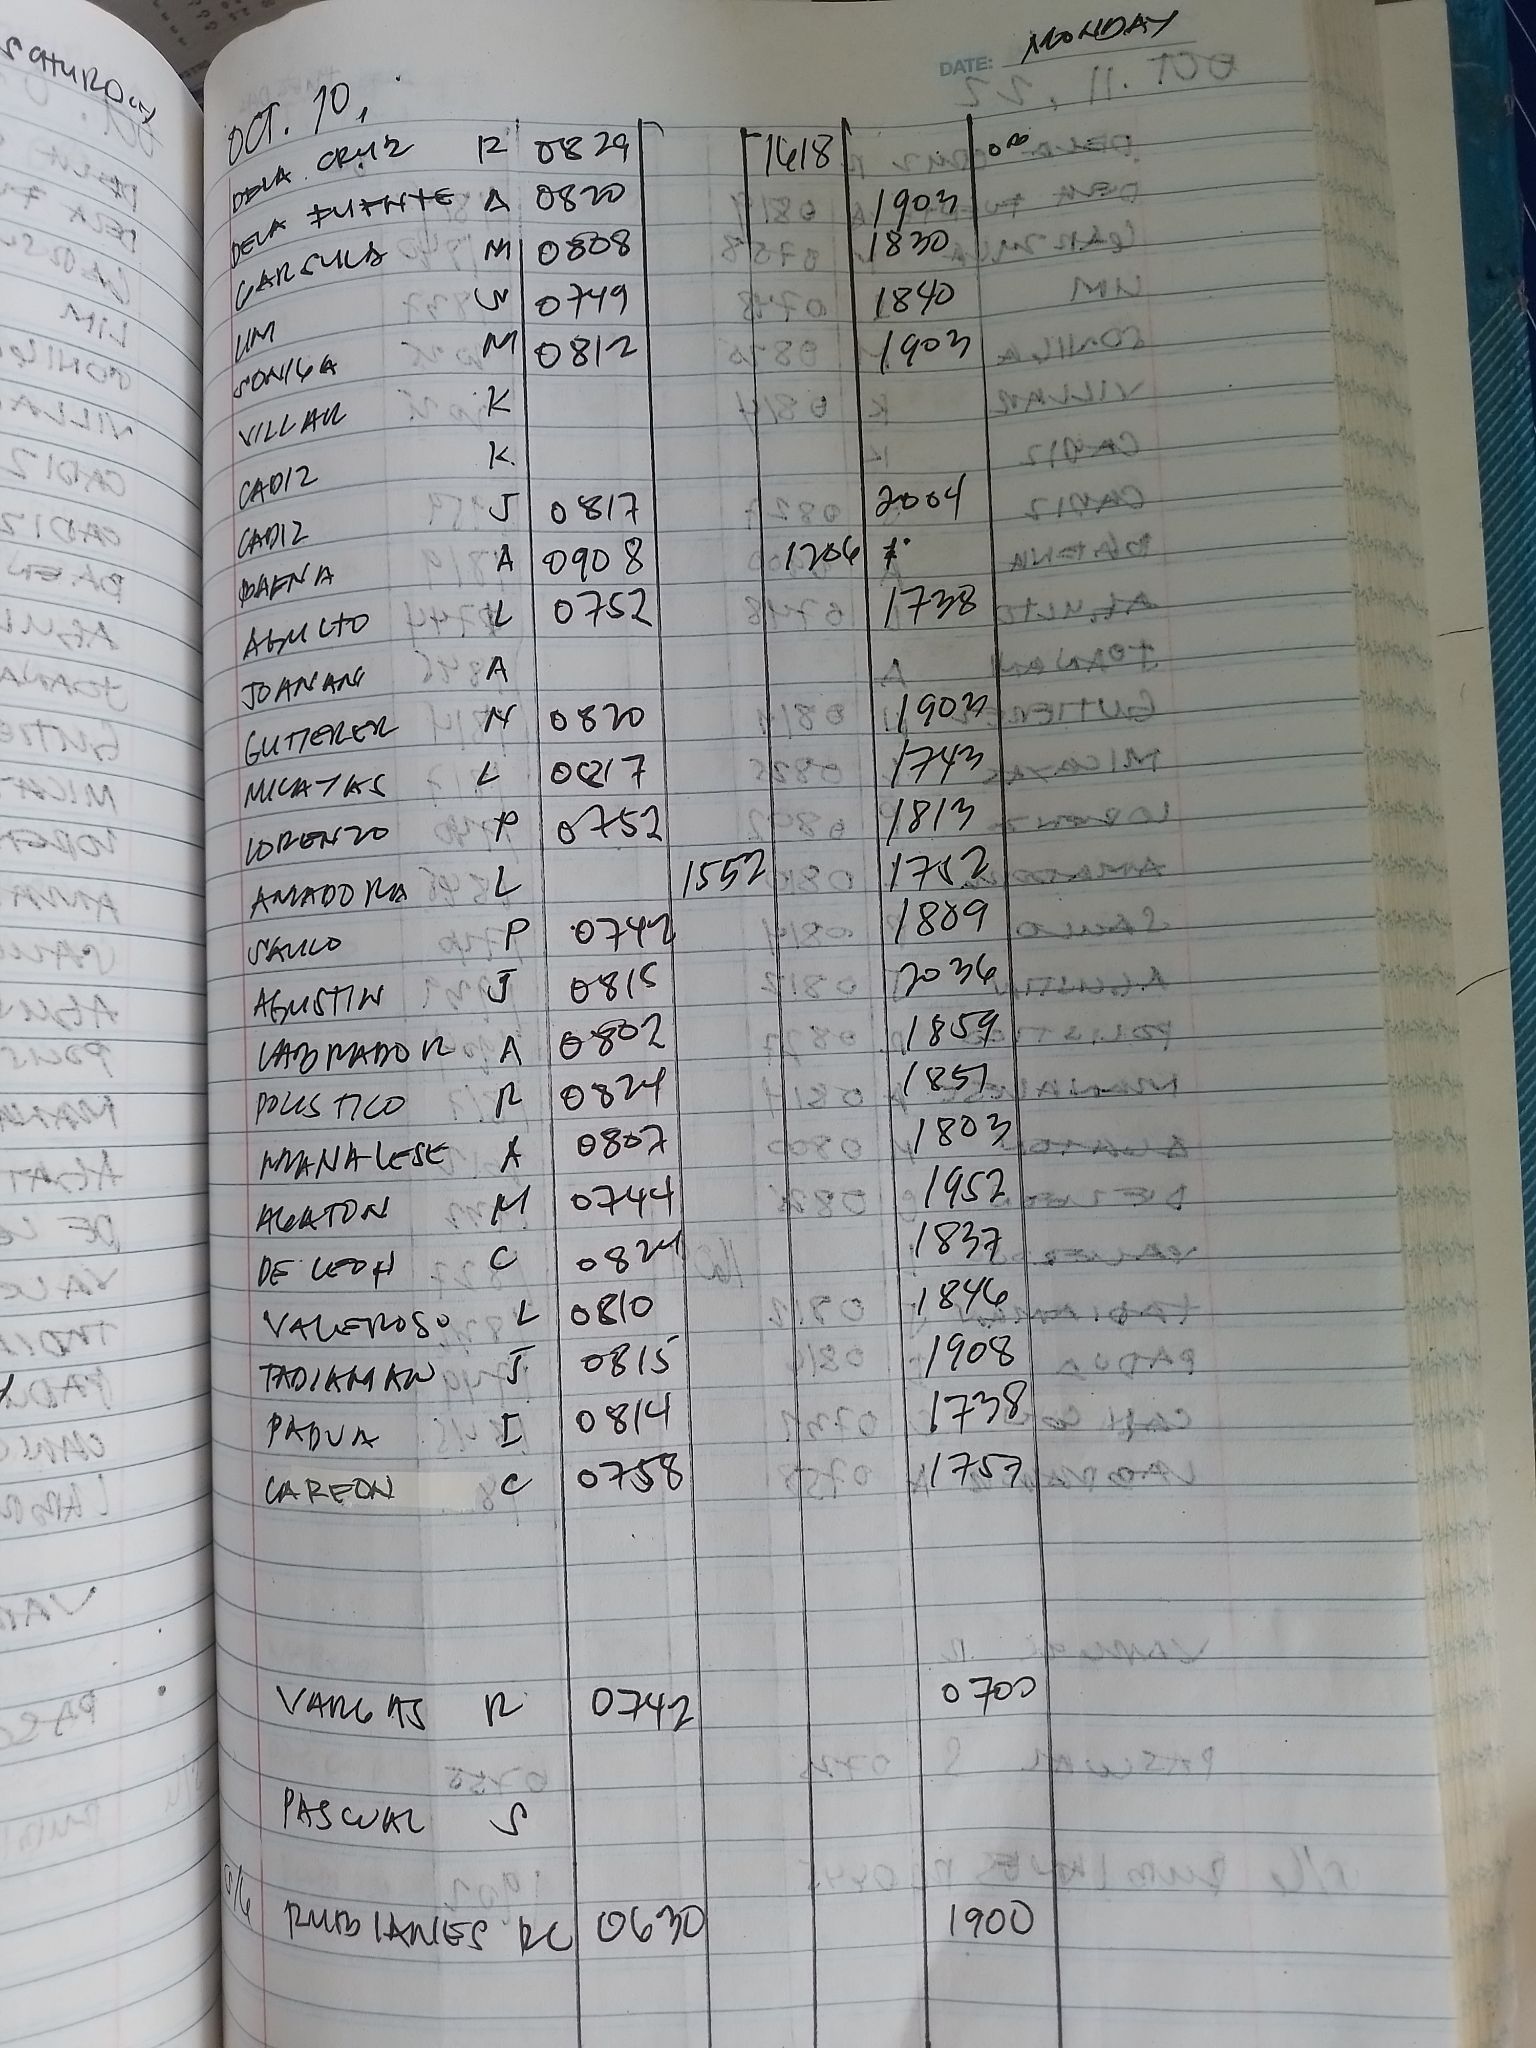 DATE: MONDAY
OCT. 10,
DELA CRUZ R 0829 1618
DELA FUENTE A 0820 1903
GARSULA M 0808 1830
LIM S 0749 1840
SONIGA M 0812 1903
VILLAR K
CADIZ K.
CADIZ J 0817 2004
BAENA A 0908 1206
AGULTO L 0752 1738
JOANANI A
GUTIERER N 0820 1903
MICAYAS L 0817 1743
LORENZO P 0752 1813
AMADORA L 1552 1752
SAULO P 0742 1809
AGUSTIN J 0815 2036
LABRADOR A 0802 1859
POLISTICO R 0824 1851
MANALESE A 0807 1803
AGATON M 0744 1952
DE LEON C 0824 1837
VALEROSO L 0810 1846
TADIAMAN J 0815 1908
PADUA I 0814 1738
CAREON C 0758 1757
VARGAS R 0742 0700
PASCUAL S
S/G RUBIANES RC 0630 1900